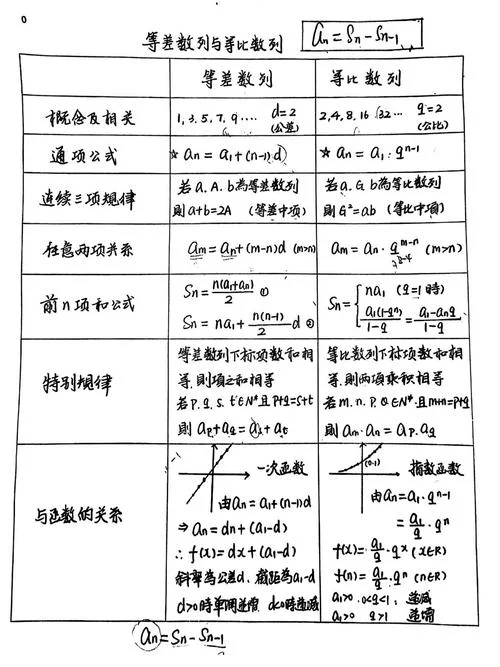 0
等差数列与等比数列 an = Sn - Sn-1
等差数列 等比数列
概念及相关
1, 3, 5, 7, 9 .... d=2
(公差)
2, 4, 8, 16, 32... q=2
(公比)
通项公式
☆ an = a1+(n-1)d
☆ an = a1·q^n-1
连续三项规律
若a. A. b為等差数列
則a+b=2A (等差中项)
若a. G. b為等比数列
則G²=ab (等比中項)
任意两项关系
am = an+(m-n)d (m>n)
am = an·q^m-n (m>n)
前n项和公式
Sn = n(a1+an)/2 ①
Sn = na1 + n(n-1)/2 d ②
Sn = { na1 (q=1時)
a1(1-q^n)/1-q = a1-anq/1-q
特别规律
等差数列下标项数和相
等.則项之和相等
若P. q. s. t∈N* 且P+q=s+t
則 ap+aq = as+at
等比数列下标项数和相
等.則两项乘积相等
若m. n. P. Q∈N*.且m+n=P+q
則 am·an = ap·aq
与函数的关系
一次函数
由an = a1+(n-1)d
⇒ an = dn + (a1-d)
∴ f(x) = dx + (a1-d)
斜率為公差d. 截距為a1-d
d>0時單調遞增 d<0時遞减
(0·1) 指数函数
由an = a1·q^n-1
= a1/q·q^n
f(x) = a1/q·q^x (x∈R)
f(n) = a1/q·q^n (n∈R)
a1>0. 0<q<1. 遞减
a1>0 q>1 遞增
an = Sn - Sn-1